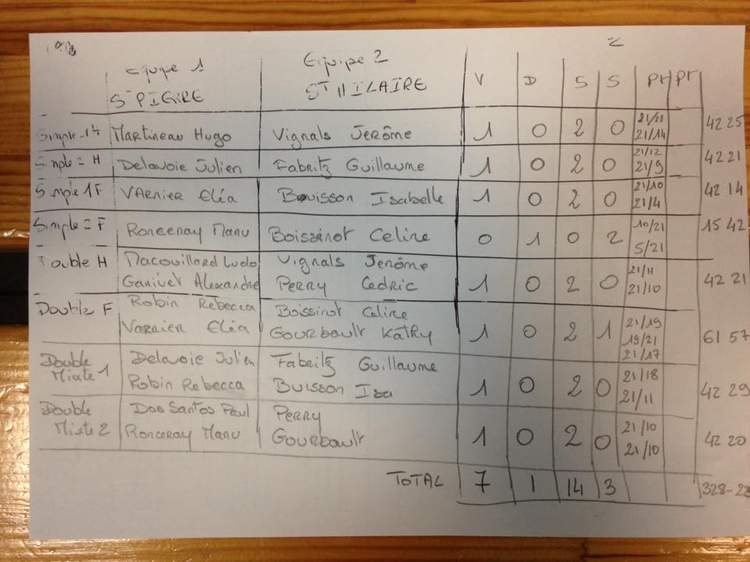 Equipe 1 Equipe 2
St PIERRE St HILAIRE V D S S Pt Pt
Simple 1H Martineau Hugo Vignals Jerôme 1 0 2 0 21/11 21/14 42 25
Simple 2 H Delavoie Julien Fabritz Guillaume 1 0 2 0 21/12 21/9 42 21
Simple 1F VARnier Eléa Buisson Isabelle 1 0 2 0 21/10 21/4 42 14
Simple 2 F Ronceray Manu Boissinot Celine 0 1 0 2 10/21 5/21 15 42
Double H Macouillard Ludo Vignals Jerôme
Ganivet Alexandre PERRY Cedric 1 0 2 0 21/11 21/10 42 21
Double F Robin Rebecca Boissinot Celine
Varnier Eléa Gourbault Kathy 1 0 2 1 21/19 19/21 21/17 61 57
Double Mixte 1 Delavoie Julien Fabritz Guillaume
Robin Rebecca Buisson Isa 1 0 2 0 21/18 21/11 42 29
Double Mixte 2 Dos Santos Paul Perry
Ronceray Manu Gourbault 1 0 2 0 21/10 21/10 42 20
TOTAL 7 1 14 3 328-22